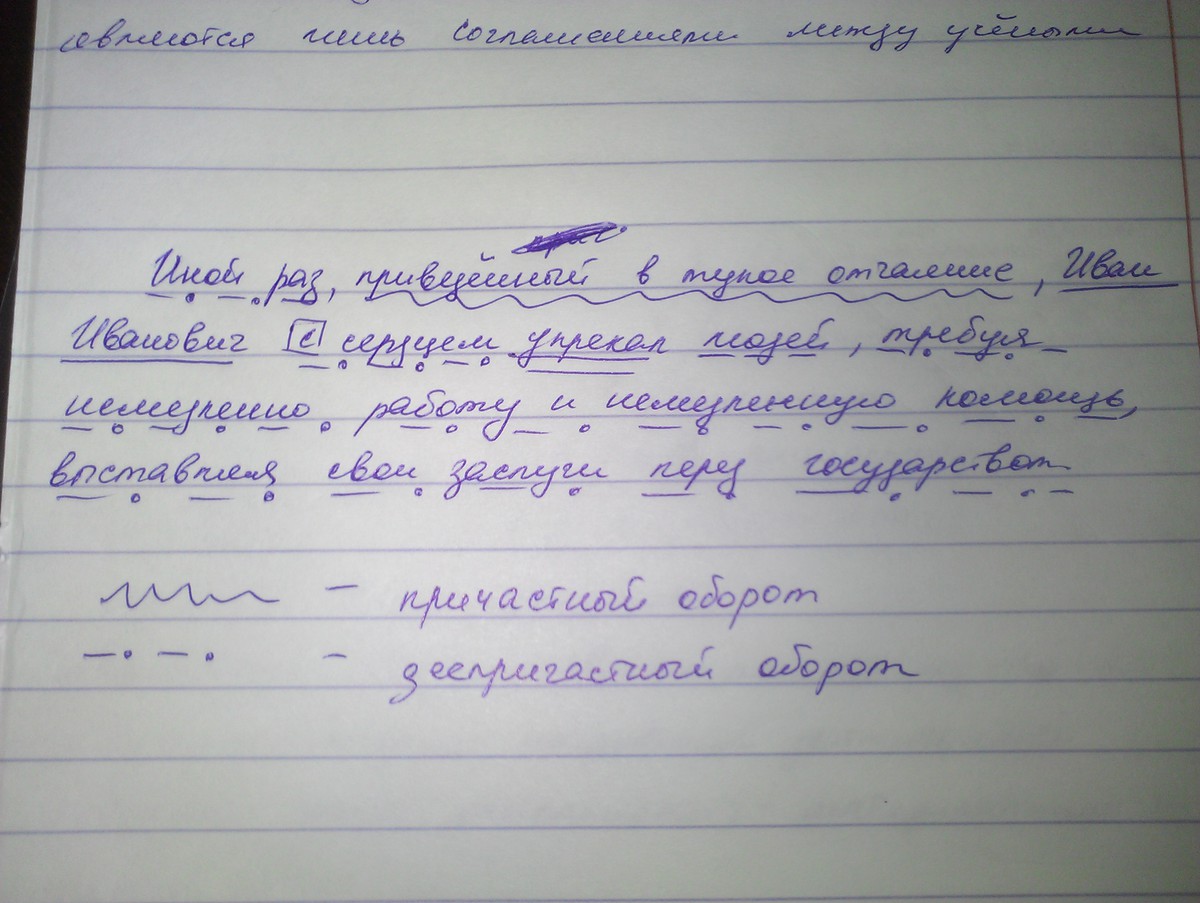 являются лишь соглашениями между учёными
Иной раз, приведённый в тупое отчаяние, Иван
Иванович с сердцем упрекал людей, требуя
немедленно работу и немедленную помощь,
выставляя свои заслуги перед государством
– причастный оборот
– деепричастный оборот